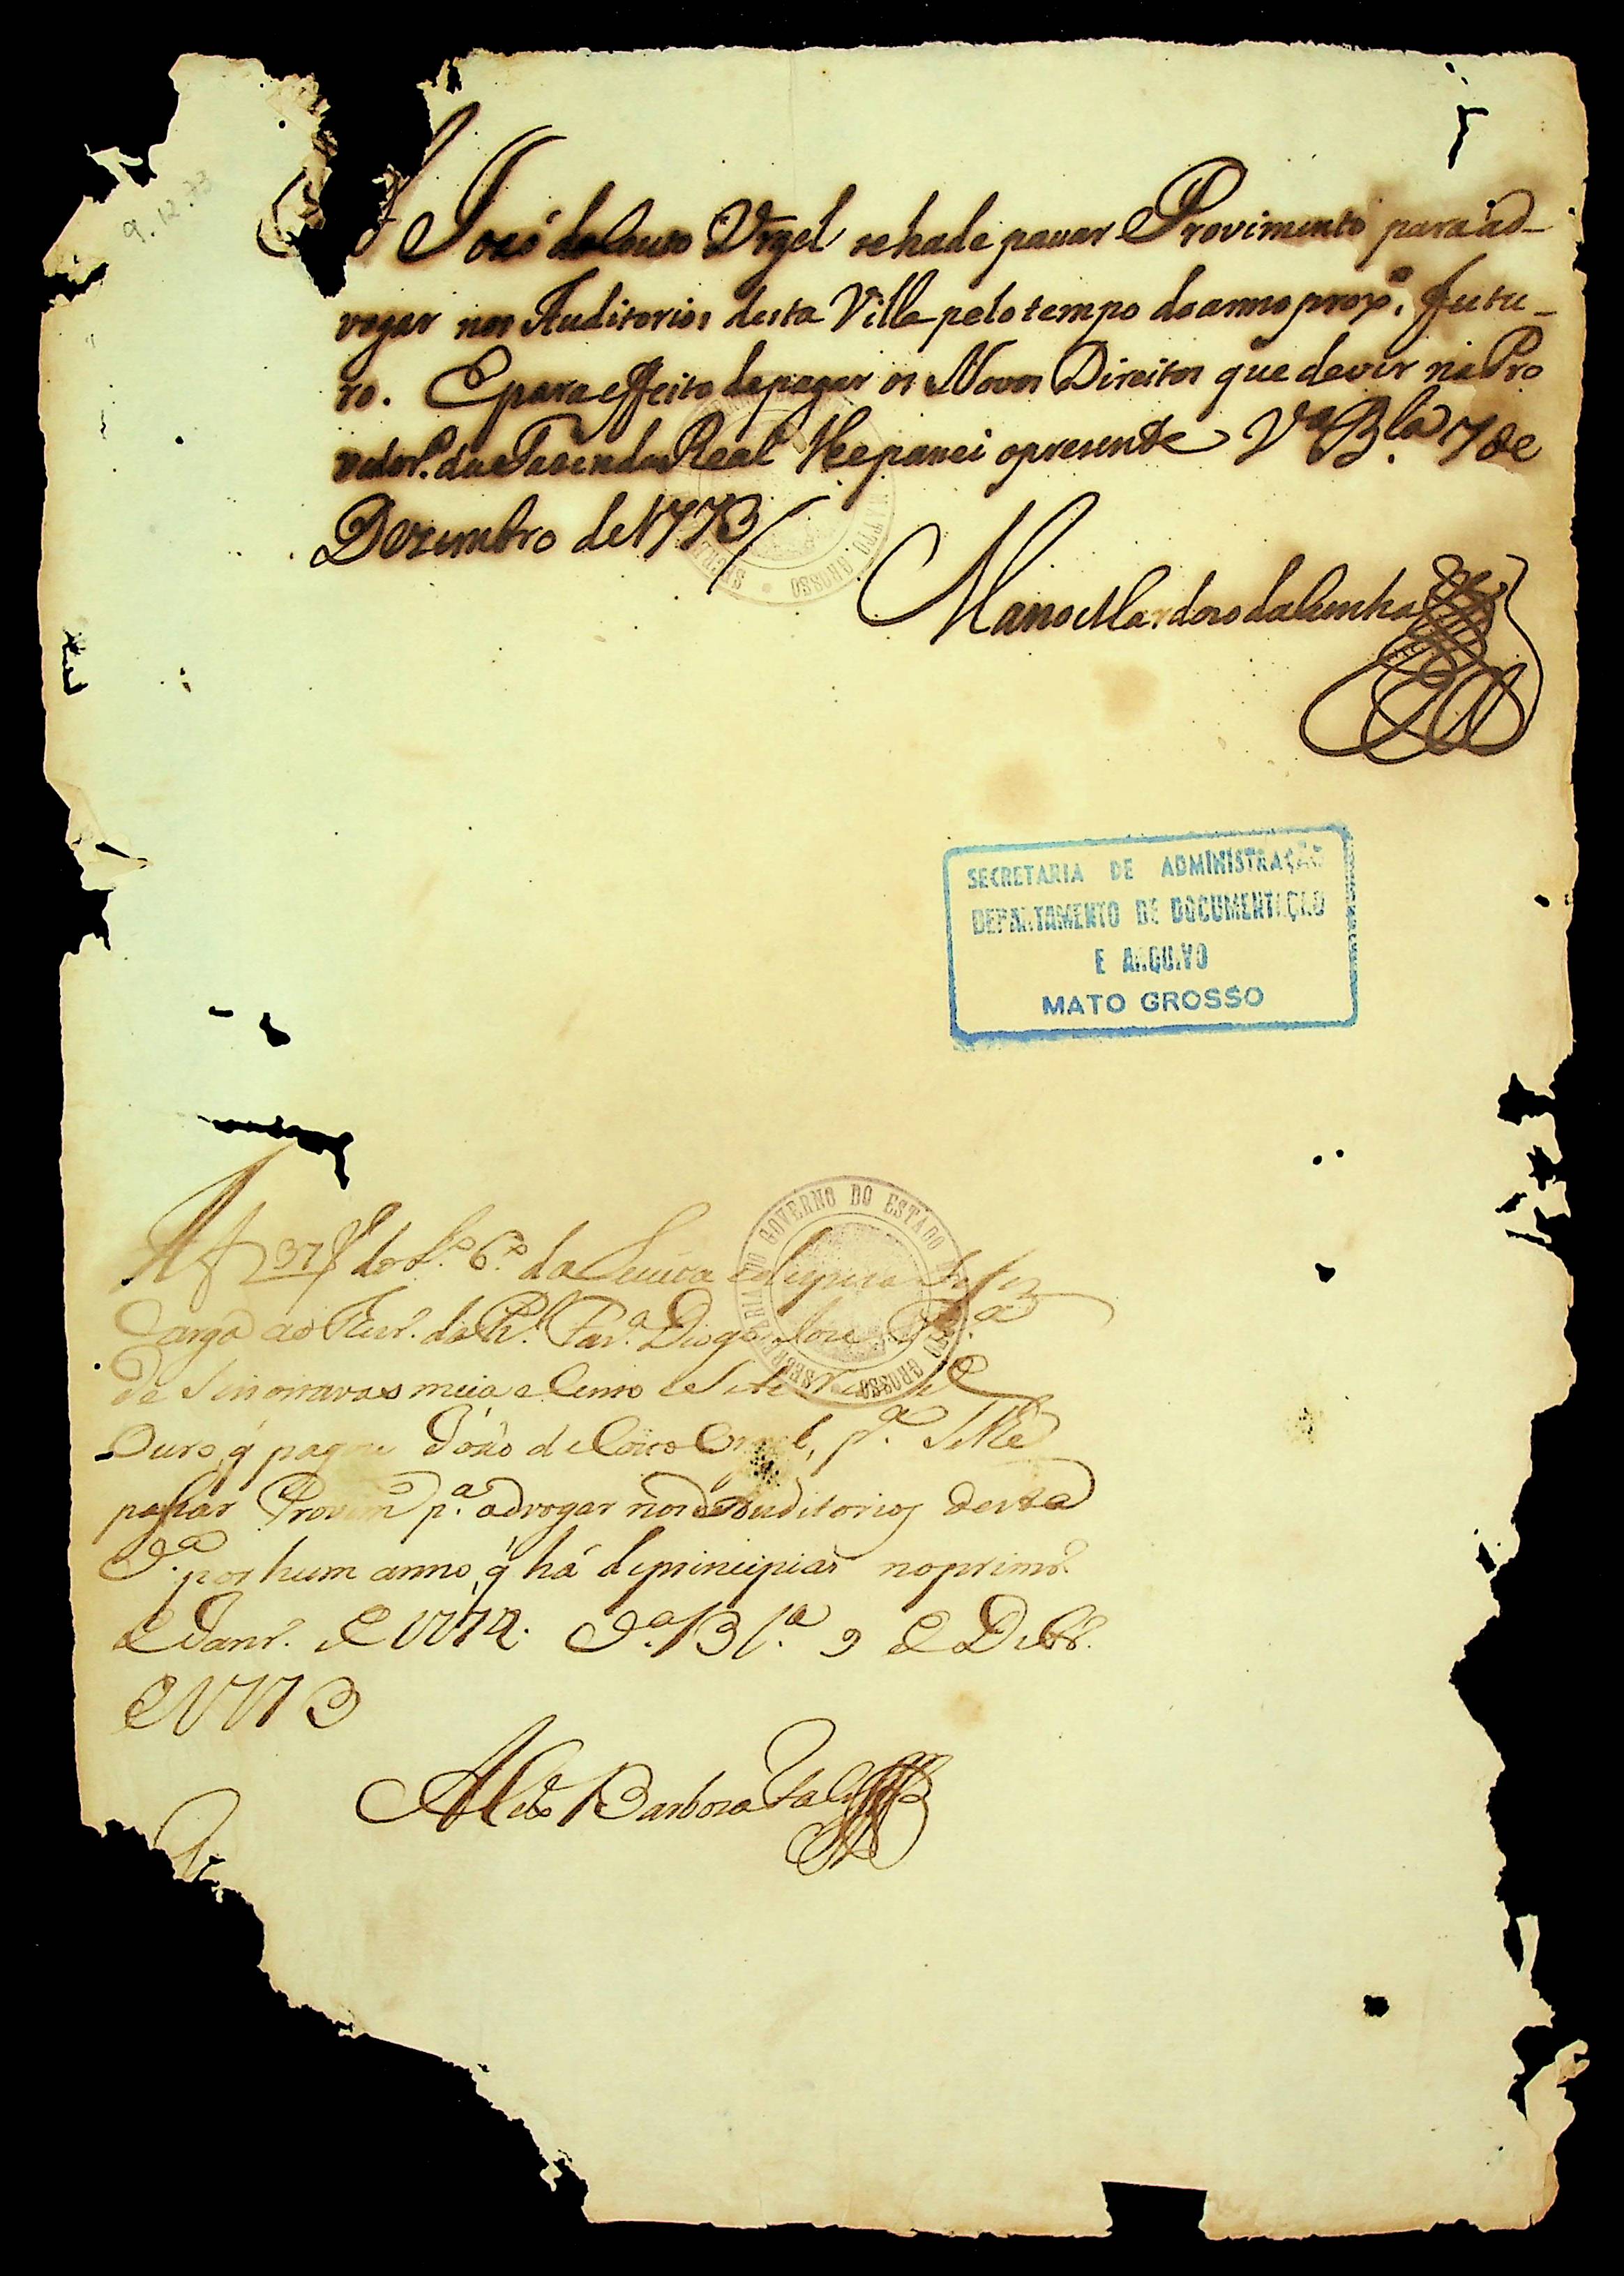 9.12.73
A José do Couto Vrgel se ha de pasar Provimento para ad-
vogar nos Auditorios desta Villa pelo tempo do anno proxº. futu-
ro. E para effeito de pagar os Novos Direitos que dever na Pro
vedorª. da Fazenda Real lhe pasei o presente Vª Bla 7 de
Dezembro de 1773
Manoel Cardozo da Cunha
SECRETARIA DE ADMINISTRAÇÃO
DEPARTAMENTO DE DOCUMENTAÇÃO
E ARQUIVO
MATO GROSSO
SECRETARIA DO GOVERNO DO ESTADO DE MATTO GROSSO
A f 37 do Lº. 6º. da
Cargo ao Thezr. da Rl. Fazª. Diogo José
de oitavas meia e
Ouro, q̃ pagou José do Couto pª. se lhe
pasar Provim pª. advogar nos Auditorios desta
Vª. por hum anno, q̃ há de principiar no primrº.
de Janrº. de 1774. Vª. Blª. 9 de Dezbrº.
de 1773
Barboza